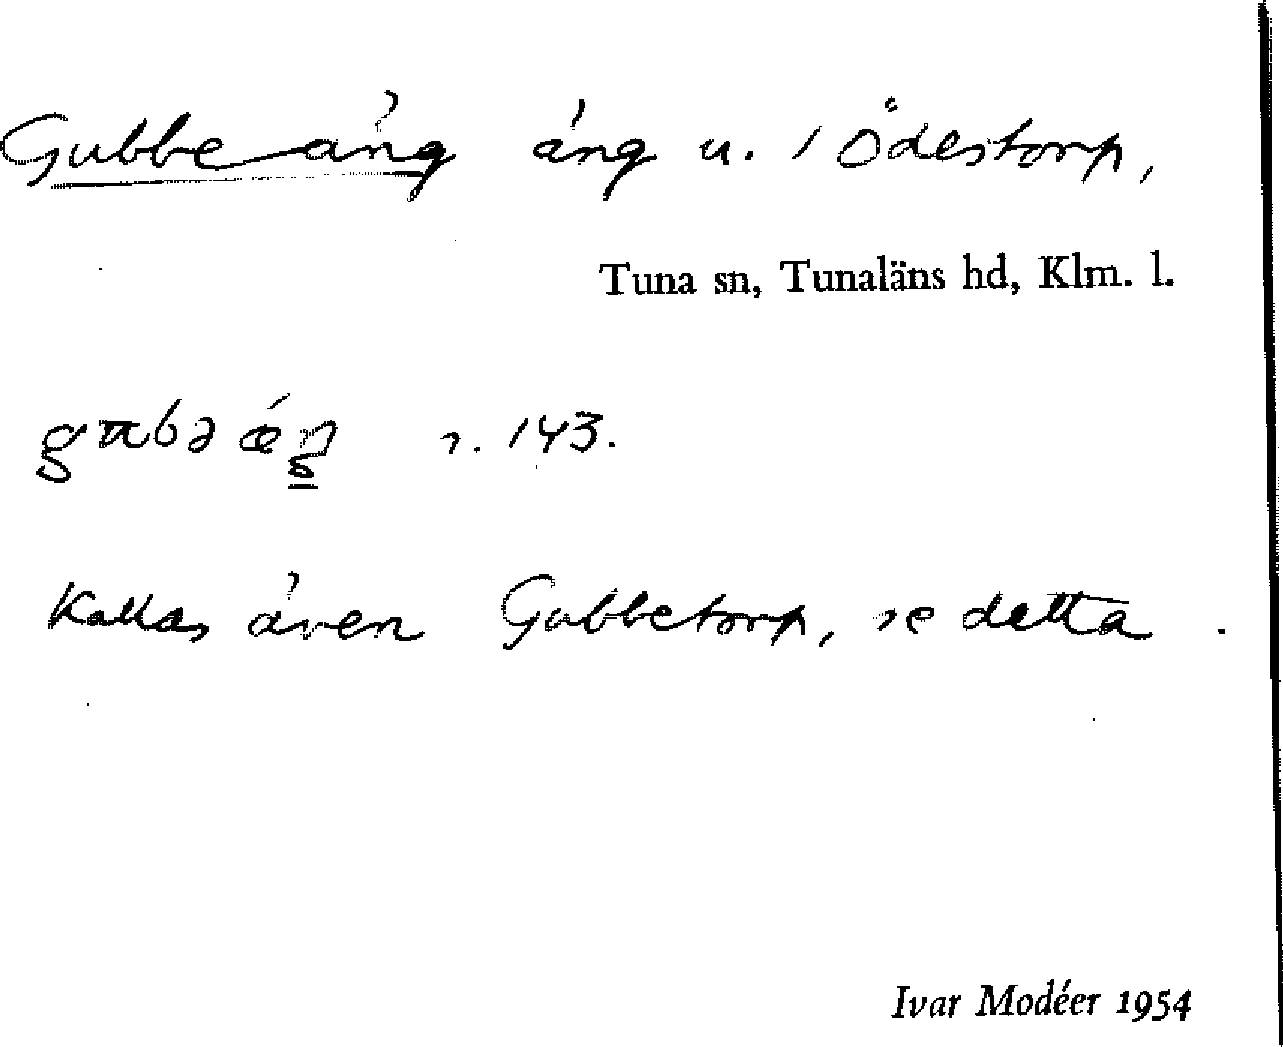 Gubbeäng äng u. 1 Ödestorp,
Tuna sn, Tunaläns hd, Klm. l.
s. 143.
Kallas även Gubbetorp, se detta.
Ivar Modéer 1954